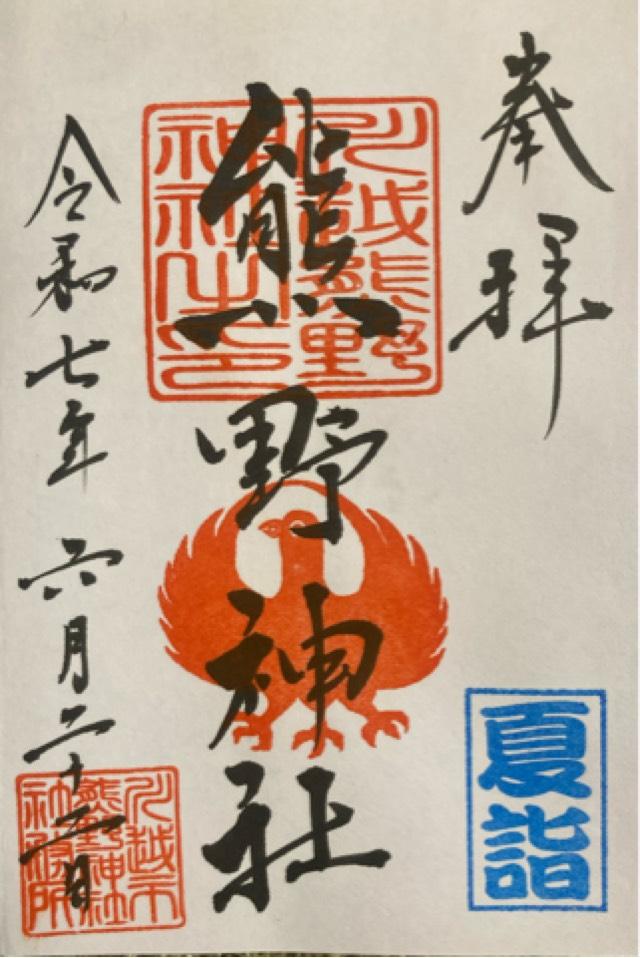 奉拝
川越熊野
神社之印
熊野神社
夏詣
令和七年 六月二十二日
川越市
熊野神社
社務所